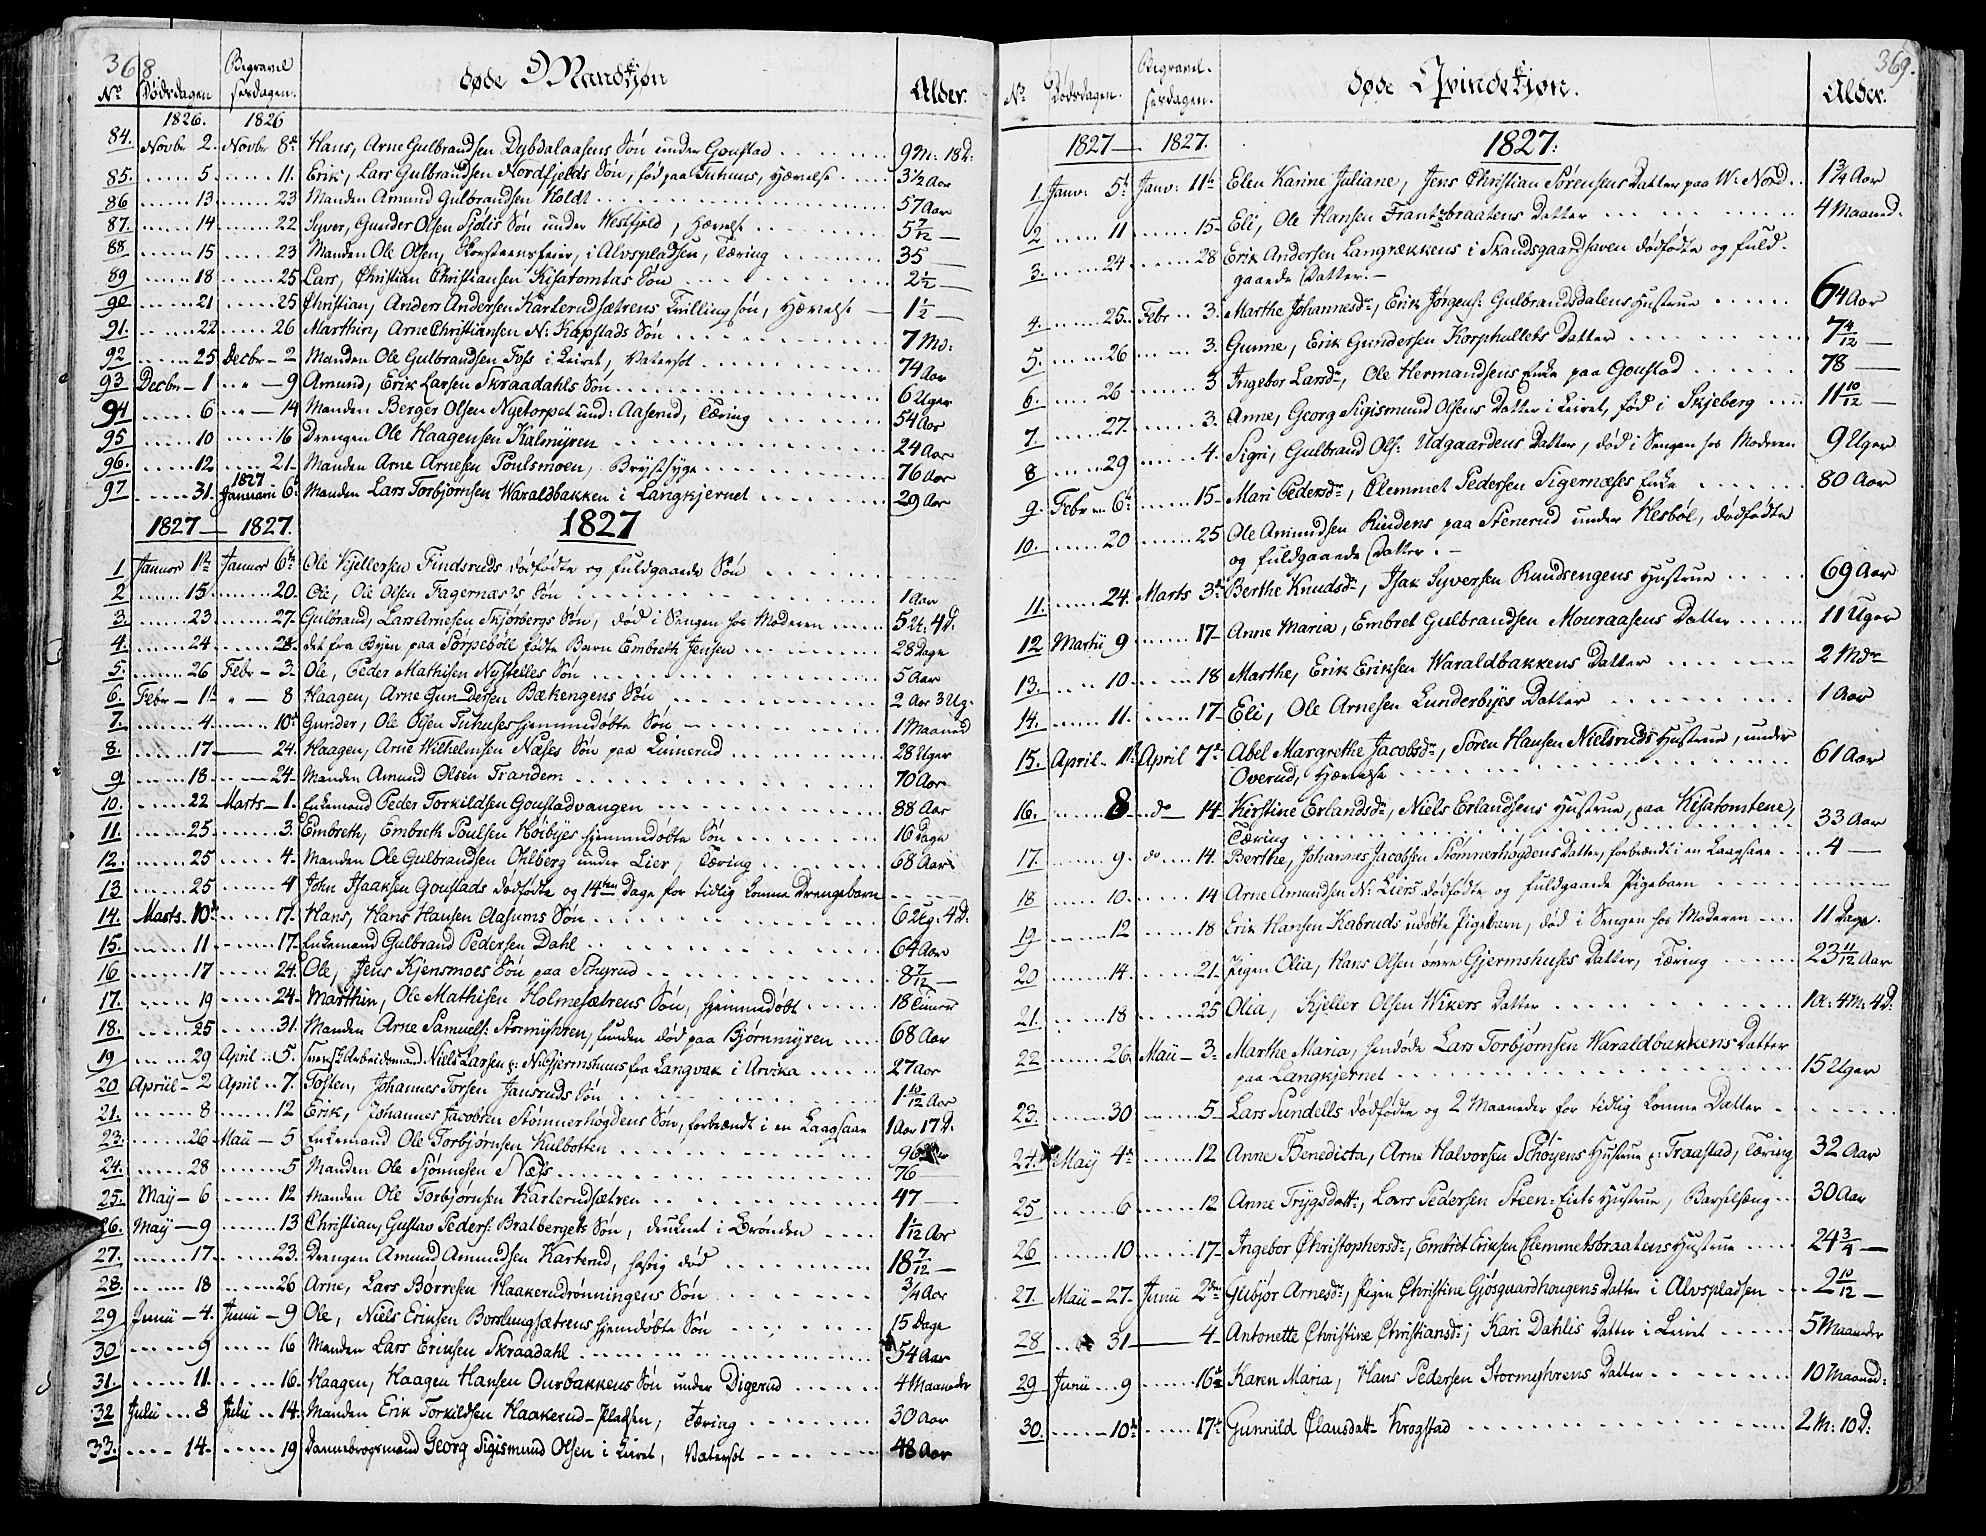 368
No Dødsdagen Begravelsesdagen. døde Mandkjøn Alder.
1826. 1826
84. Novbr 2. Novbr 8de Hans, Arne Gulbrandsen Dybdalaasens Søn under Goustad 9 M: 18 D:
85. 5 11. Erik, Lars Gulbrandsen Nordfjelds Søn, fød paa Tuhuus, Hævelse 3 1/2 Aar
86 13 23 Manden Amund Gulbrandsen Holdt 57 Aar
87. 14 22 Syver, Gunder Olsen Sjølis Søn under Vestfjeld, Hævelse
88. 15 23 Manden Ole Olsen, Skorsteensfeier, i Alvspladsen, Tæring 35 —
89 18 25 Lars, Christian Christiansen Kisatomtas Søn 2 1/2 —
90 21 25 Christian, Anders Andersen Karterudsætrens Tvillingsøn, Hævelse 1 1/2 —
91. 22 26 Marthin, Arne Christiansen N: Kopstads Søn 7 Md:
92 25 Decbr 2 Manden Ole Gulbrandsen Foss i Leiret, Vatersot 74 Aar
93 Decbr 1 9 Amund, Erik Larsen Skraadahls Søn 6 Uger
94 6 14 Manden Berger Olsen Nyetorpet und: Aaserud, Tæring 54 Aar
95 10 16 Drengen Ole Haagensen Kalmyren 24 Aar
96. 12 21 Manden Arne Arnesen Poulsmoen, Brystsyge 76 Aar
97 31. 1827 Januarii 6te Manden Lars Torbjørnsen Waraldbakken i Langkjernet 29 Aar
1827 — 1827. 1827
1 Januar 1ste Januar 6te Ole Kjellersen Findsruds dødfødte og fuldgaaende Søn
2 15 20. Ole, Ole Olsen Fagernæs's Søn 1 Aar
3. 23 27. Gulbrand, Lars Arnesen Skjørbergs Søn, død i Sengen hos Moderen 5 Ug: 4 D:
4. 24 28. det fra Byen paa Sorpebøl fødte Barn Embreth Jensen 28 Dage
5. 26 Febr 3. Ole, Peder Mathisen Nystelles Søn 5 Aar
6. Febr 1ste 8 Haagen, Arne Gundersen Bækengens Søn 2 Aar 3 Ug.
7. 4. 10de Gunder, Ole Olsen Tuhuses hjemmedøbte Søn 1 Maaned
8. 17 24. Haagen, Arne Wilhelmsen Næses Søn paa Linnerud 28 Uger
9 18 24. Manden Amund Olsen Trandem 70 Aar
10. 22 Marts 1. Enkemand Peder Torkildsen Goustadvangen 88 Aar
11. 25 3. Embreth, Embreth Poulsen Høibyes hjemmedøbte Søn 16 Dage
12. 25 4. Manden Ole Gulbrandsen Ohlberg under Lier, Tæring 68 Aar
13 25 4 John Isaaksen Goustads dødfødte og 14ten Dage for tidlig komne Drengebarn
14. Marts 10de 17. Hans, Hans Hansen Aasums Søn 6 Ug: 4 D:
15. 11 17. Enkemand Gulbrand Pedersen Dahl 64 Aar
16 17 24. Ole, Jens Kjensmoes Søn paa Schyrud 8 7/12 —
17. 19 24. Marthin, Ole Mathisen Holmesætrens Søn, hjemmedøbt 18 Timer
18. 25 31. Manden Arne Samuels: Stormyhren, funden død paa Bjørnmyren 68 Aar
19 29 April 5. Svensk Arbeidsmand Niels Larsen p: N: Gjermshuus fra Langvak i Arvika 27 Aar
20 Apriil 2 April 7. Tosten, Johannes Torsen Jansruds Søn 1 10/12 Aar
21. 8 12 Erik, Johannes Jacobsen Stømnerhøgdens Søn, forbrændt i en Laagsaae 1 Aar 17 D.
23. 26 Maii 5 Enkemand Ole Torbjørnsen Kulbotten 96
24. 28 5 Manden Ole Sjønnesen Næss 76
25. May 6 12 Manden Ole Torbjørnsen Karterudsætren 47 —
26. May 9 13 Christian, Gustav Peders: Bratbergets Søn, druknet i Brønden 1 1/12 Aar
27. 17. 23. Drengen Amund Amundsen Karterud, hastig død 18 7/12 —
28. 18 26 Arne, Lars Børresen Haakerudrønningens Søn 3/4 Aar
29 Junii 4. Junii 9 Ole, Niels Eriksen Borslungsætrens hjemdøbte Søn 15 Dage
30 9 16 Manden Lars Eriksen Skraadahl 54 Aar
31. 11. 16. Haagen, Haagen Hansen Ourbakkens Søn under Digerud 4 Maaneder
32 Julii 8 Julii 14. Manden Erik Torkildsen Haakerud-Pladsen, Tæring 30 Aar
33. 14. 19 Dannebrogsmand Georg Sigismund Olsen i Leiret, Vatersot 48 Aar
369.
No Dødsdagen. Begravelsesdagen. døde Qvindekjøn. Alder.
1827 — 1827. 1827:
1. Janv: 5te Janv: 11te Elen Karine Juliane, Jens Christian Sørensens Datter paa W: Nord 1 3/4 Aar
2 11 15 Eli, Ole Hansen Frantzbraatens Datter 4 Maaned:
3. 24 28 Erik Andersen Langrækkens i Skandsgaardhaven dødfødte og fuldgaaende Datter. —
4. 25. Febr 3. Marthe Johannesdr, Erik Jørgens: Gulbrandsdalens Hustrue 64 Aar
5. 26 3. Gunne, Erik Gundersen Korphullets Datter 7 4/12 —
6. 26 3 Ingebor Larsdr, Ole Hermandsens Enke paa Goustad 78 —
7 27. 3. Anne, Georg Sigismund Olsens Datter i Leiret, fød i Skjeberg 11 10/12 —
8 29 4. Sigri, Gulbrand Ols: Udgaardens Datter, død i Sengen hos Moderen 9 Uger
9. Febr 6te 15. Mari Pedersdr, Clemmet Pedersen Sigernæses Enke 80 Aar
10. 20 25 Ole Amundsen Rindens paa Stenerud under Kesbøl, dødfødte
og fuldgaaende Datter. —
11. 24. Marts 3die Berthe Knudsdr, Isak Syversen Rundsengens Hustrue 69 Aar
12 Martii 9 17 Anne Maria, Embret Gulbrandsen Mouraasens Datter 11 Uger
13. 10 18 Marthe, Erik Eriksen Waraldbakkens Datter 2 Mdr
14. 11. 17 Eli, Ole Arnesen Lunderbyes Datter 1 Aar
15. April 1ste April 7de Abel Margrethe Jacobsdr, Søren Hansen Nielsruds Hustrue, under
Overud, Hævelse 61 Aar
16. 8 do 14 Kirstine Erlandsdr, Niels Erlandsens Hustrue, paa Kisatomtene,
Tæring 33 Aar
17. 9. do 14. Berthe, Johannes Jacobsen Stømnerhøgdens Datter, forbrændt i en Laagsaae 4 —
18 10. 14 Arne Amundsen N: Liers dødfødte og fuldgaaende Pigebarn
19 12 18 Erik Hansen Kabruds udøbte Pigebarn, død i Sengen hos Moderen 11 Dage.
20 14. 21. Pigen Olia, Hans Olsen øvre Gjermshuses Datter, Tæring 23 11/12 Aar
21. 18 25 Olia, Kjeller Olsen Wikers Datter 1 A: 4 M: 4 D:
22 26. Maii 3. Marthe Maria, hendøde Lars Torbjørnsen Waraldbakkens Datter
paa Langkjernet 15 Uger
23. 30 5 Lars Sundells dødfødte og 2 Maaneder for tidlig komne Datter
24. May 4de 12 Anne Benedicta, Arne Halvorsen Schøyens Hustrue p: Traastad, Tæring 32 Aar
25 6 12 Anne Trygsdatt:, Lars Pedersen Steen-Eiets Hustrue, Barselseng 30 Aar
26 10 17 Ingebor Christophersdr, Embret Eriksen Clemmetsbraatens Hustrue 24 3/4 —
27. Maii 27. Junii 2den Gubjør Arnesdr, Pigen Christine Gjøsgaardhougens Datter i Alvspladsen 2 10/12 —
28 31 4 Antonette Christine Christiansdr, Kari Dahlis Datter i Leiret 5 Maaneder
29 Junii 9 16de Karen Maria, Hans Pedersen Stormyhrens Datter 10 Maaned:
30. 10de 17de Gunnild Olausdatt: Krogstad 2 M: 10 D: